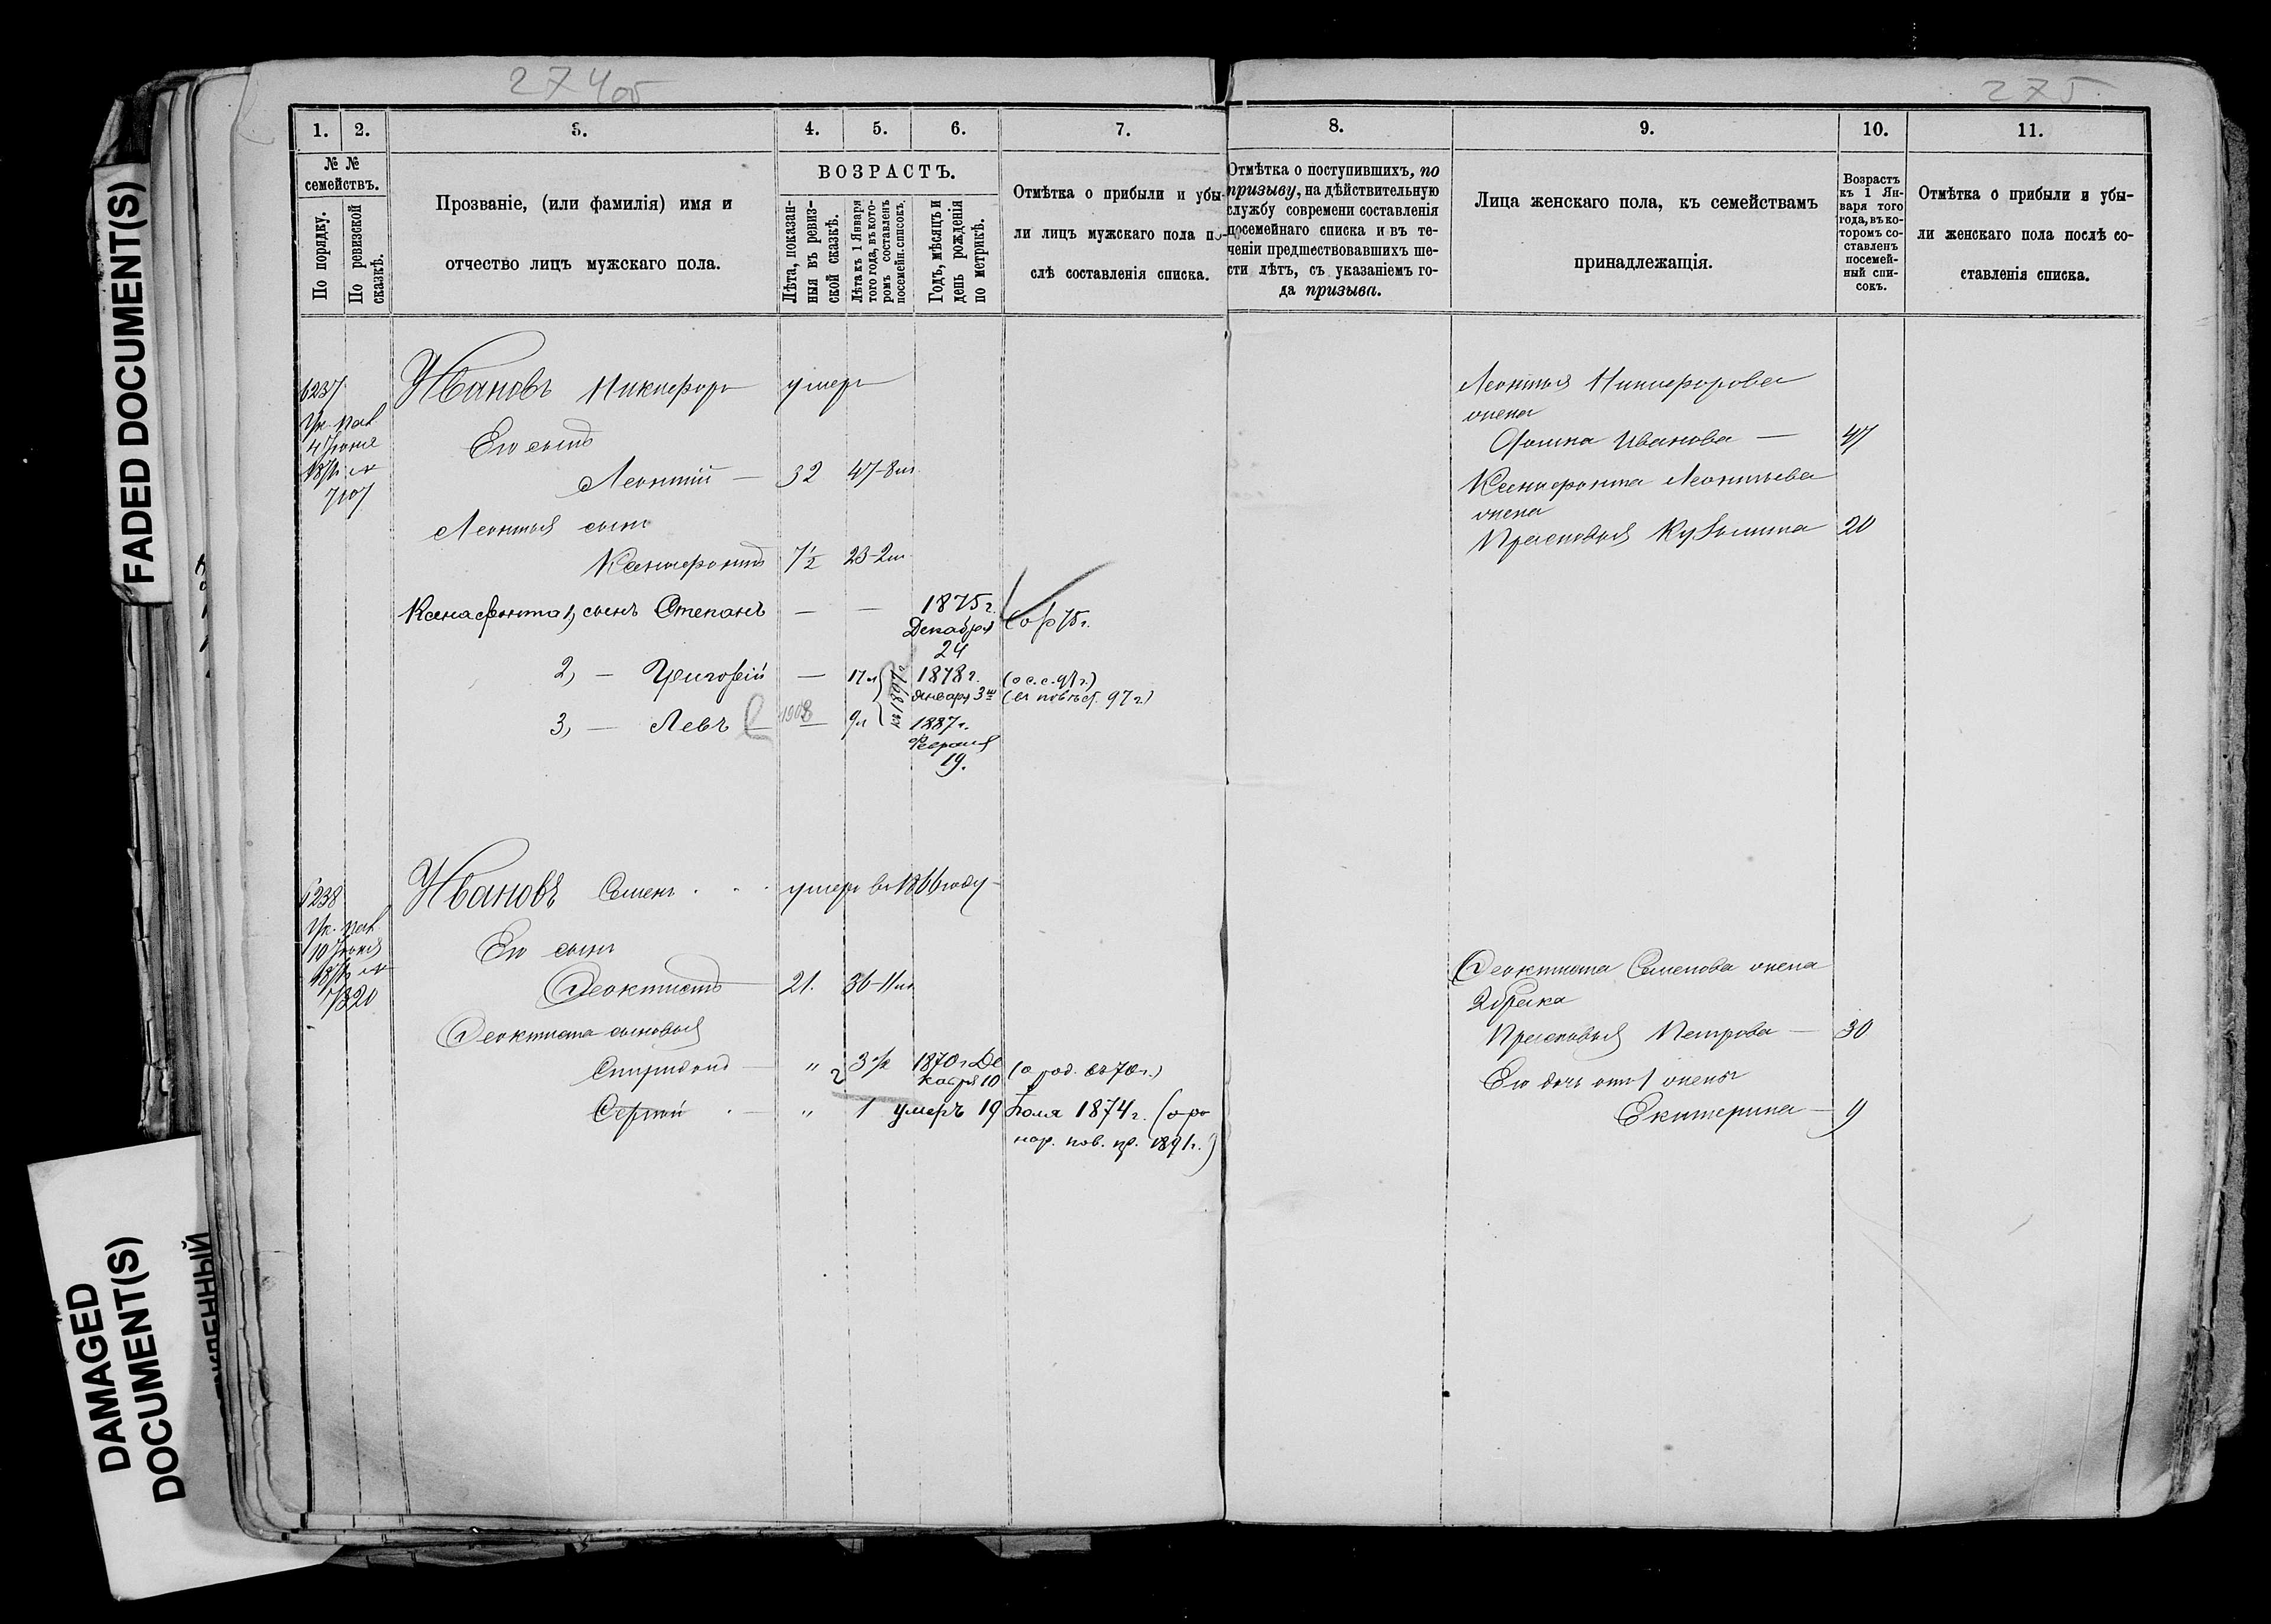 274об
275
1. 2. 3. 4. 5. 6. 7. 8. 9. 10. 11.
№ №
семействъ.
По порядку.
По ревизской
сказкѣ.
Прозваніе, (или фамилія) имя и
отчество лицъ мужскаго пола.
ВОЗРАСТЪ.
Лѣта, показан-
ныя въ ревиз-
ской сказкѣ.
Лѣта къ 1 Января
того года, въ кото-
ромъ составленъ
посемейн. списокъ.
Годъ, мѣсяцъ и
день рожденія
по метрикѣ.
Отмѣтка о прибыли и убы-
ли лицъ мужскаго пола по-
слѣ составленія списка.
Отмѣтка о поступившихъ, по
призыву, на дѣйствительную
службу современи составленія
посемейнаго списка и въ те-
ченіи предшествовавшихъ ше-
сти лѣтъ, съ указаніемъ го-
да призыва.
Лица женскаго пола, къ семействамъ
принадлежащія.
Возрастъ
къ 1 Ян-
варя того
года, въ ко-
торомъ со-
ставленъ
посемей-
ный спи-
сокъ.
Отмѣтка о прибыли и убы-
ли женскаго пола послѣ со-
ставленія списка.
6237
4 Іюня
7107
Ивановъ Никифоръ умеръ
Его сынъ
Леонтій — 32 47-8м.
Леонтья сынъ
Ксенофонтъ 7½ 23-2м.
Ксенофонта 1, сынъ Степанъ — — 1875 г.
Декабря
24
2, — Григорій — 17л 1878 г.
Января 3
(въ 97 г.)
3, — Левъ 1908 — 9л 1887 г.
Февраля
19.
Леонтья Никифорова
жена
Иванова — 47
Ксенофонта Леонтьева
жена
Прасковья Кузьмина 20
6238
10 Іюня
7320
Ивановъ Семенъ умеръ въ 1866 году
Его сынъ
Феоктистъ 21. 36-11м.
Феоктиста сыновья
Спиридонъ — " 3 1870 г. Де
кабря 10 (о род. въ 70 г.)
Сергѣй — " 1 умеръ 19 Іюля 1874 г. (о ро
нар. пов. пр. 1891 г.)
Феоктиста Семенова жена
2 брака
Прасковья Петрова — 30
Его дочь отъ 1 жены
Екатерина — 9
FADED DOCUMENT(S)
DAMAGED
DOCUMENT(S)